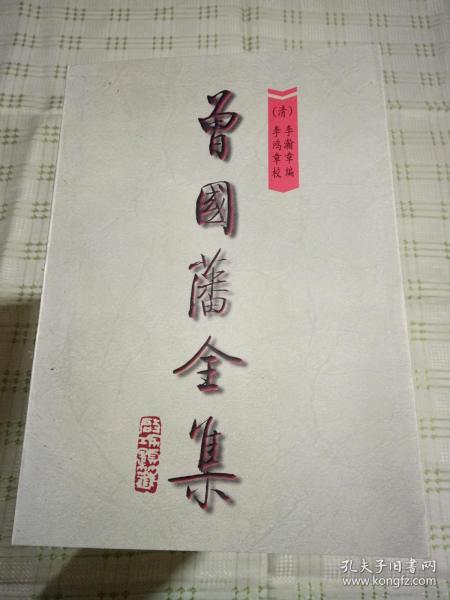 (清)
李瀚章编
李鸿章校
曾國藩全集
孔夫子旧书网
www.kongfz.com